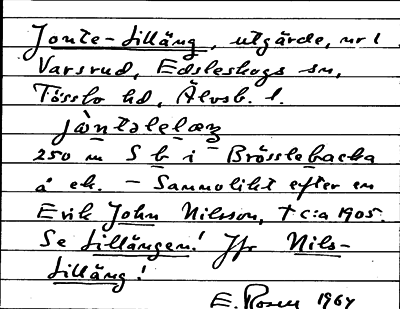 Jonte-Lilläng, utgärde, nr 1
Varsrud, Edsleskogs sn,
Tösslo hd, Älvsb. l.
jòntəleḷæŋ
250 m S b i Brösslebacka
å ek. – Sannolikt efter en
Erik John Nilsson, † c:a 1905.
Se Lillängen! Jfr Nils-
Lilläng!
E. Rosen 1964